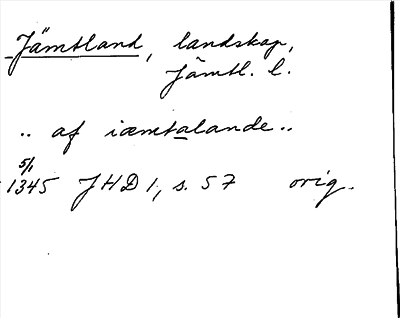 Jämtland, landskap,
Jämtl. l.
.. af iæmtalande..
5/1
1345 JHD 1, s. 57 orig.